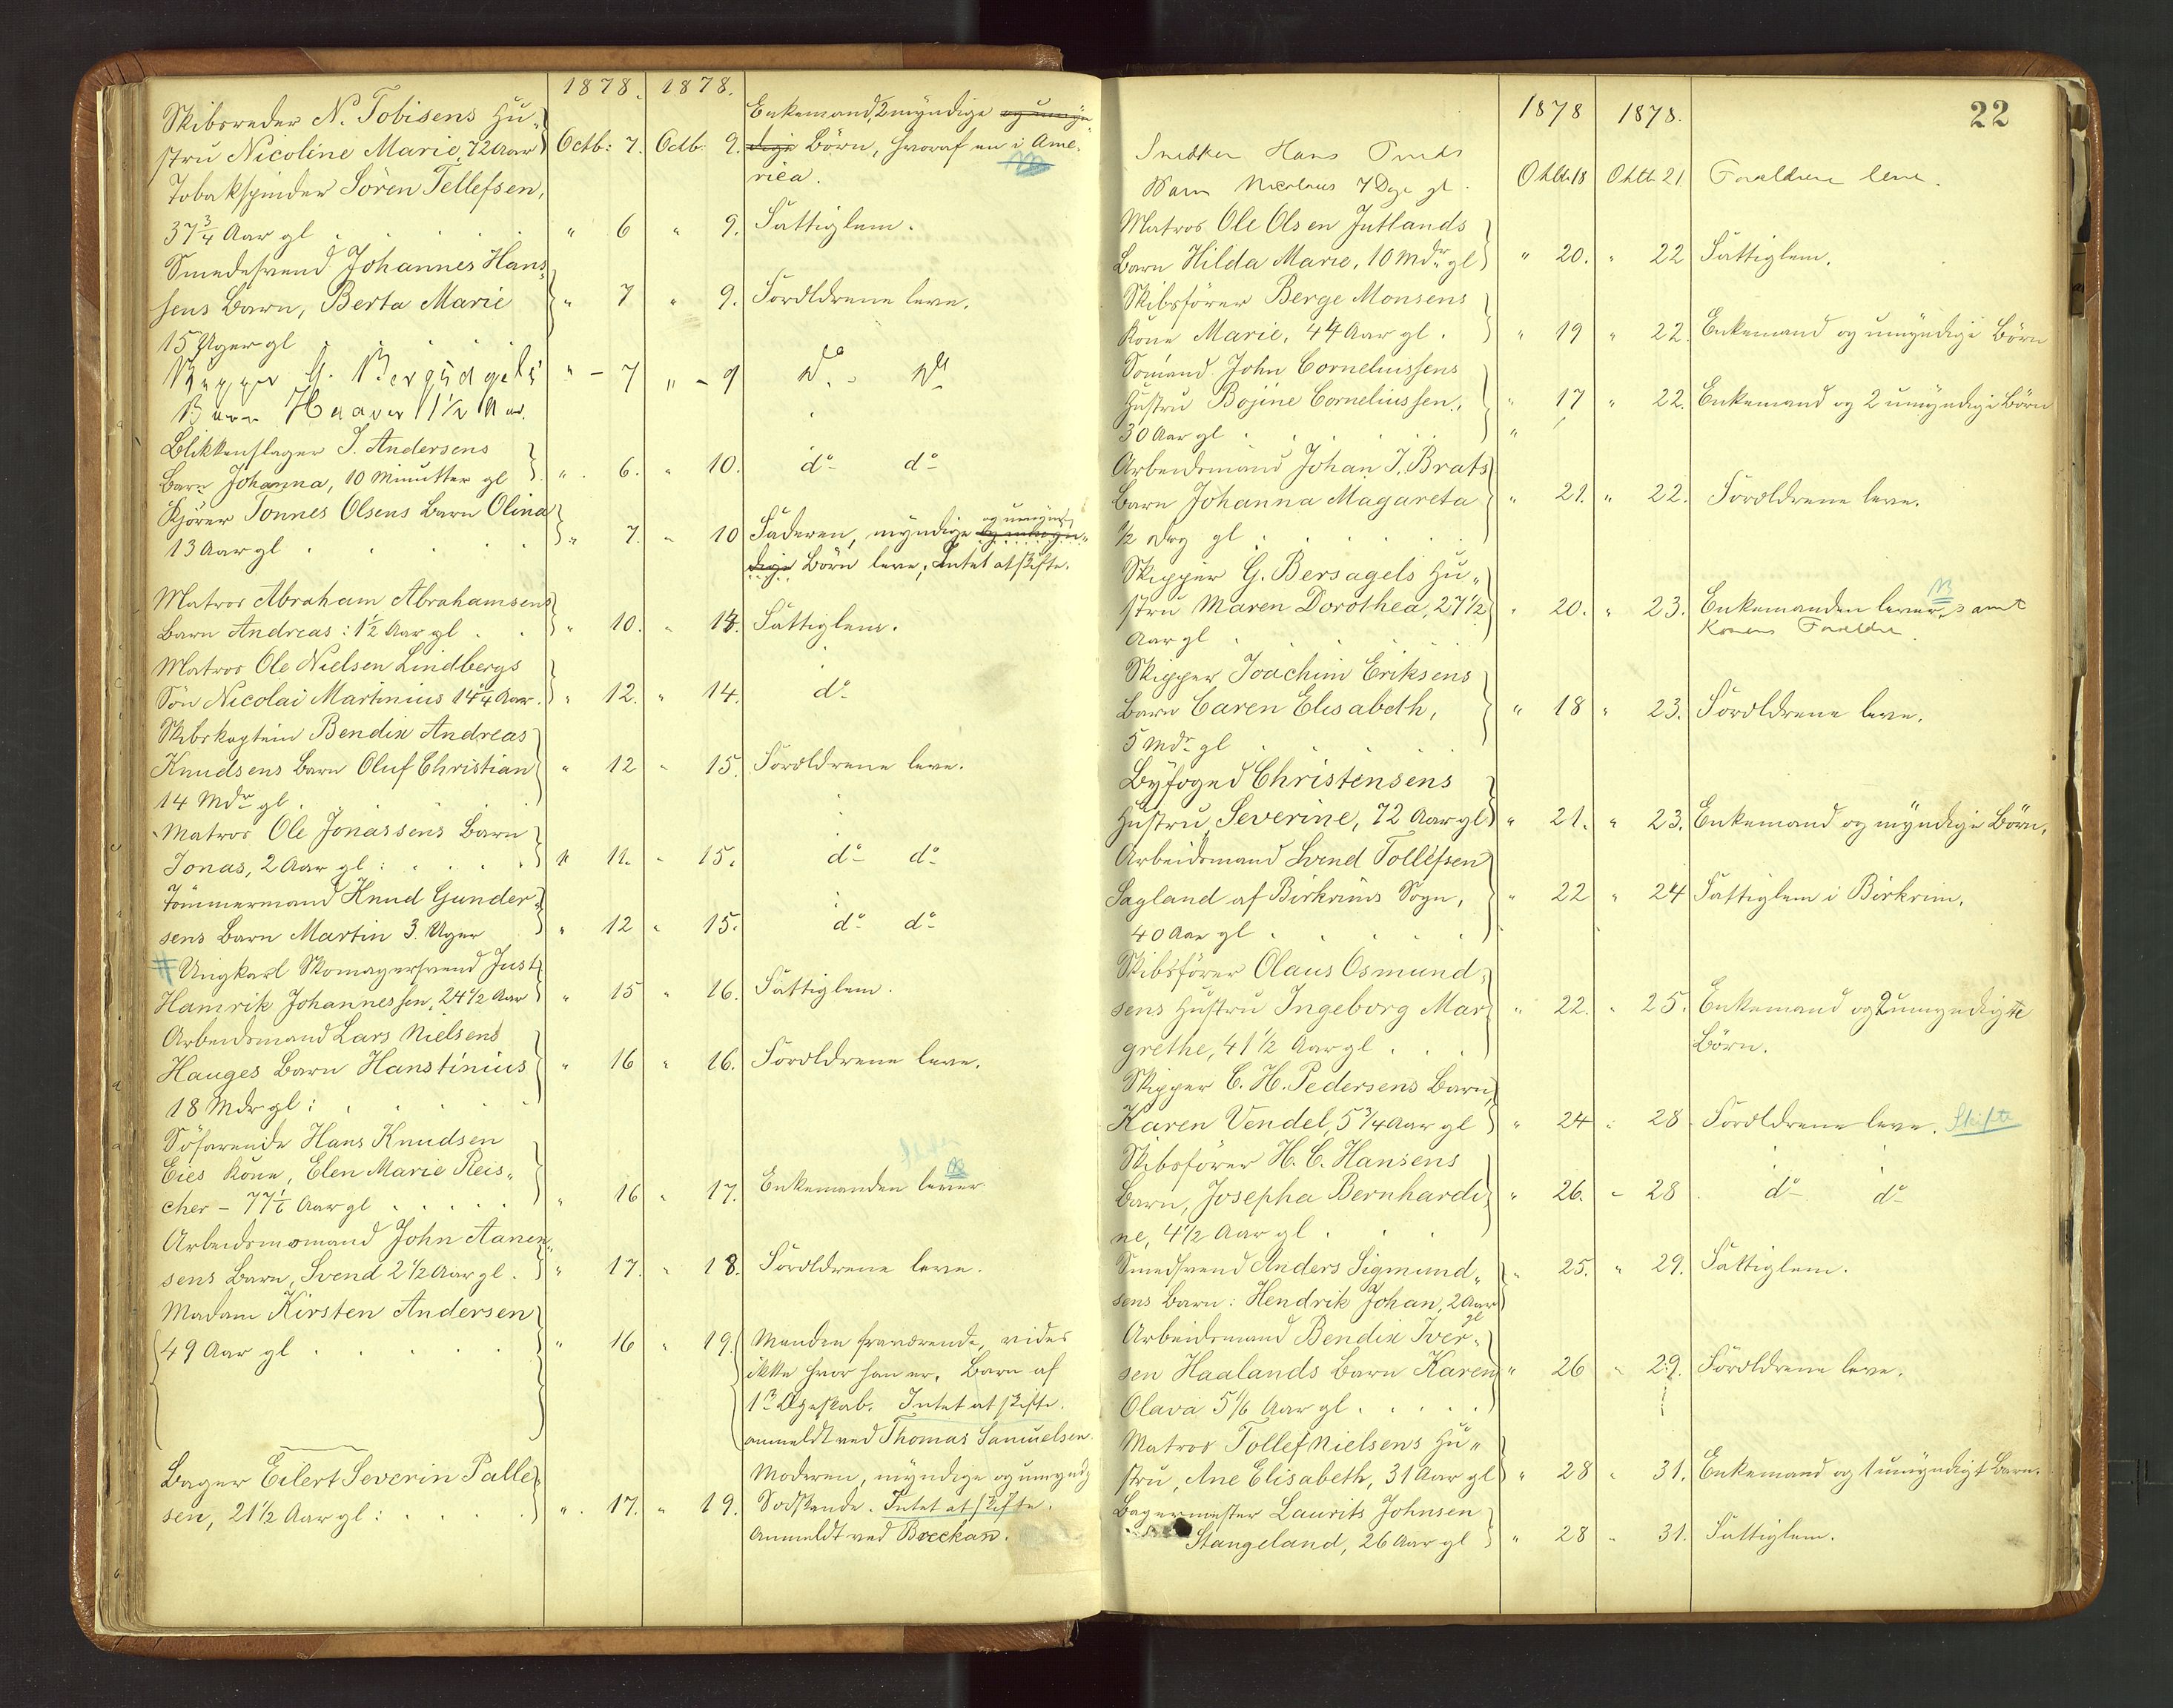 1878. 1878.
Skibsreder N. Tobisens Hu-
stru Nicoline Marie, 72 Aar Octb: 7. Octb: 9. Enkemand, 2 myndige og umyn-
dige Börn, hvoraf en i Ame-
rica.
Tobakspinder Sören Tellefsen,
37 3/4 Aar gl " 6 " 9. Fattiglem.
Smedesvend Johannes Hans-
sens Barn, Berta Marie " 7 " 9. Forældrene leve.
15 Uger gl
Skipper G. Bersagels " - 7 " - 9 Do. Do
Barn Haaver 1 1/2 Aar.
Blikkenslager J. Andersens
Barn Johanna, 10 Minutter gl " 6. " 10. do do
Kjörer Tonnes Olsens Barn Olina
13 Aar gl " 7. " 10 Faderen, myndige og umyn-
dige Börn leve; Intet at skifte.
Matros Abraham Abrahamsens
Barn Andreas: 1 1/2 Aar gl " 10. " 14. Fattiglem.
Matros Ole Nielsen Lindbergs
Sön Nicolai Martinius 14 1/4 Aar. " 12. " 14. do
Skibskaptein Bendix Andreas
Knudsens Barn Oluf Christian " 12 " 15. Forældrene leve.
14 Mdr gl.
Matros Ole Jonassens Barn
Jonas, 2 Aar gl: " 11. " 15. do do
Tömmermand Knud Gunder-
sens Barn Martin 3. Uger " 12 " 15. do do
# Ungkarl Skomagersvend Just
Hamrik Johannessen, 24 1/2 Aar " 15 " 16. Fattiglem.
Arbeidsmand Lars Nielsens
Hauges Barn Hanstinius " 16 " 16. Forældrene leve.
18 Mdr gl:
Söfarende Hans Knudsen
Eies Kone, Elen Marie Reis-
cher - 77 1/2 Aar gl " 16 " 17. Enkemanden lever
Arbeidsmomand John Aanen-
sens Barn, Svend 2 1/2 Aar gl. " 17. " 18. Forældrene leve.
Madam Kirsten Andersen
49 Aar gl " 16 " 19. Manden fraværende, vides
ikke hvor han er. Barn af
1ste Ægteskab. Intet at skifte.
anmeldt ved Thomas Samuelsen.
Bager Eilert Severin Palle-
sen, 21 1/2 Aar gl: " 17. " 19. Moderen, myndige og umyndg
Södskende. Intet at skifte.
Anmeldt ved Bzeckan.
22
1878 1878.
Snedker Hans
Barn Nicolaus 7 Dage gl. Oktb 18 Oktb 21 Forældrene leve.
Matros Ole Olsen Jutlands
Barn Hilda Marie, 10 Mdr gl " 20. " 22 Fattiglem.
Skibsförer Berge Monsens
Kone Marie, 44 Aar gl. " 19 " 22. Enkemand og umyndige Börn
Sömand John Corneliussens
Hustru Bojine Corneliussen, " 17 " 22. Enkemand og 2 umyndige Börn
30 Aar gl "
Arbeidsmand Johan J. Brats
Barn Johanna Magareta " 21. " 22. Forældrene leve.
1/2 Dag gl
Skipper G. Bersagels Hu-
stru Maren Dorothea, 27 1/2 " 20. " 23. Enkemanden lever, samt
Aar gl Konens Forældre.
Skipper Joachim Eriksens
Barn Caren Elisabeth, " 18 " 23. Forældrene leve.
5 Mdr gl
Byfoged Christensens
Hustru Severine, 72 Aar gl " 21. " 23. Enkemand og myndige Börn.
Arbeidsmand Svend Tollefsen
Sagland af Birkrims Sogn, " 22 " 24 Fattiglem i Birkrim.
40 Aar gl
Skibsförer Olaus Osmund-
sens Hustru Ingeborg Mar- " 22. " 25. Enkemand og 2 umyndigte
grethe, 41 1/2 Aar gl Börn.
Skipper C. H. Pedersens Barn
Karen Vendel, 5 3/4 Aar gl " 24 " 28 Forældrene leve. Skifte
Skibsförer H. C. Hansens
Barn, Josepha Bernhardi- " 26. " 28 do do
ne, 4 1/2 Aar gl
Smedsvend Anders Sigmund- " 25. " 29. Fattiglem.
sens Barn: Hendrik Johan, 2 Aar
gl
Arbeidsmand Bendix Iver-
sen Haalands Barn Karen " 26 " 29. Forældrene leve.
Olava 5 1/6 Aar gl
Matros Tollef Nielsens Hu-
stru, Ane Elisabeth, 31 Aar gl " 28 " 31. Enkemand og 1 umyndigt Barn.
Bagermester Laurits Johnsen
Stangeland, 26 Aar gl " 28 " 31. Fattiglem.